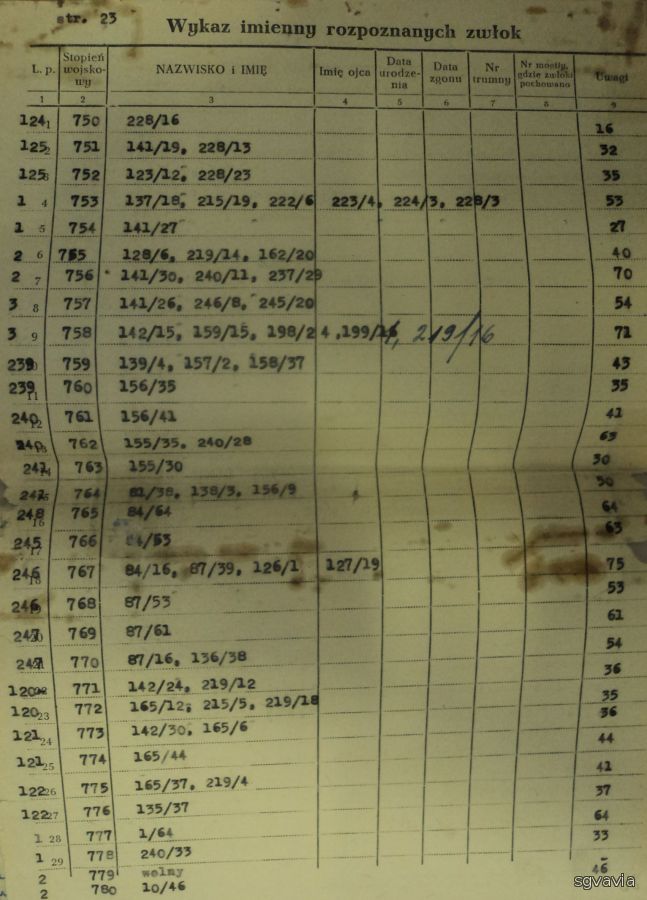 str. 23
Wykaz imienny rozpoznanych zwłok
L. p. Stopień wojsko-wy NAZWISKO i IMIĘ Imię ojca Data urodze-nia Data zgonu Nr trumny Nr mogiły, gdzie zwłoki pochowano Uwagi
1 2 3 4 5 6 7 8 9
124 1 750 228/16 16
125 2 751 141/19, 228/13 32
125 3 752 123/12, 228/23 35
1 4 753 137/18, 215/19, 222/6 223/4, 224/3, 228/3 53
1 5 754 141/27 27
2 6 755 128/6, 219/14, 162/20 40
2 7 756 141/30, 240/11, 237/29 70
3 8 757 141/26, 246/8, 245/20 54
3 9 758 142/15, 159/15, 198/24, 199/16, 219/16 71
239 10 759 139/4, 157/2, 158/37 43
239 11 760 156/35 35
240 12 761 156/41 41
240 13 762 155/35, 240/28 63
241 14 763 155/30 30
241 15 764 81/38, 138/3, 156/9 50
248 16 765 84/64 64
245 17 766 84/53 63
246 18 767 84/16, 87/39, 126/1 127/19 75
246 19 768 87/53 53
247 20 769 87/61 61
247 21 770 87/16, 136/38 54
120 22 771 142/24, 219/12 36
120 23 772 165/12, 215/5, 219/18 35
36
121 24 773 142/30, 165/6
121 25 774 165/44 44
122 26 775 165/37, 219/4 41
122 27 776 135/37 37
1 28 777 1/64 64
1 29 778 240/33 33
2 779 wolny
2 780 10/46 46
sgvavia